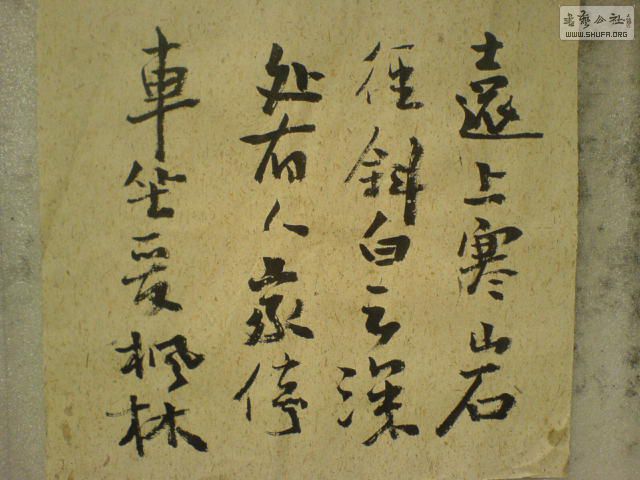 遠上寒山石
径斜白云深
处有人家停
車坐爱枫林
书艺公社
WWW.SHUFA.ORG